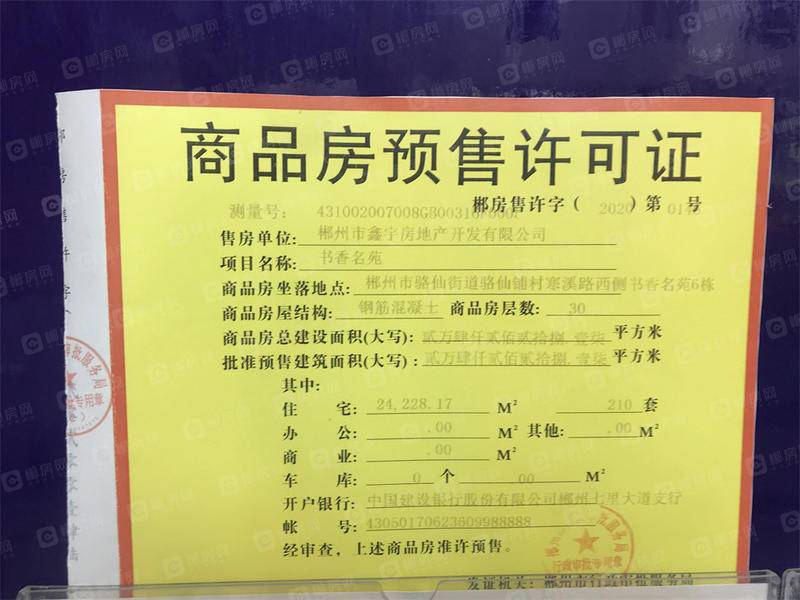 商品房预售许可证
郴房售许字（2020）第 号
测量号：
售房单位：郴州市鑫宇房地产开发有限公司
项目名称：书香名苑
商品房坐落地点：郴州市骆仙街道骆仙铺村寒溪路西侧书香名苑6栋
商品房屋结构：钢筋混凝土 商品房层数：30
商品房总建设面积(大写)：贰万肆仟贰佰贰拾捌.壹柒 平方米
批准预售建筑面积(大写)：贰万肆仟贰佰贰拾捌.壹柒 平方米
其中：
住 宅：24,228.17 M² 210 套
办 公：.00 M² 其他：.00 M²
商 业：.00 M²
车 库：0 个 00 M²
开户银行：中国建设银行股份有限公司郴州七里大道支行
帐 号：43050170623609988888
经审查，上述商品房准许预售。
行政审批专用章
发证机关：郴州市行政审批服务局
郴房售许字
审批服务局
专用章
贰零零壹肆陆
郴房网